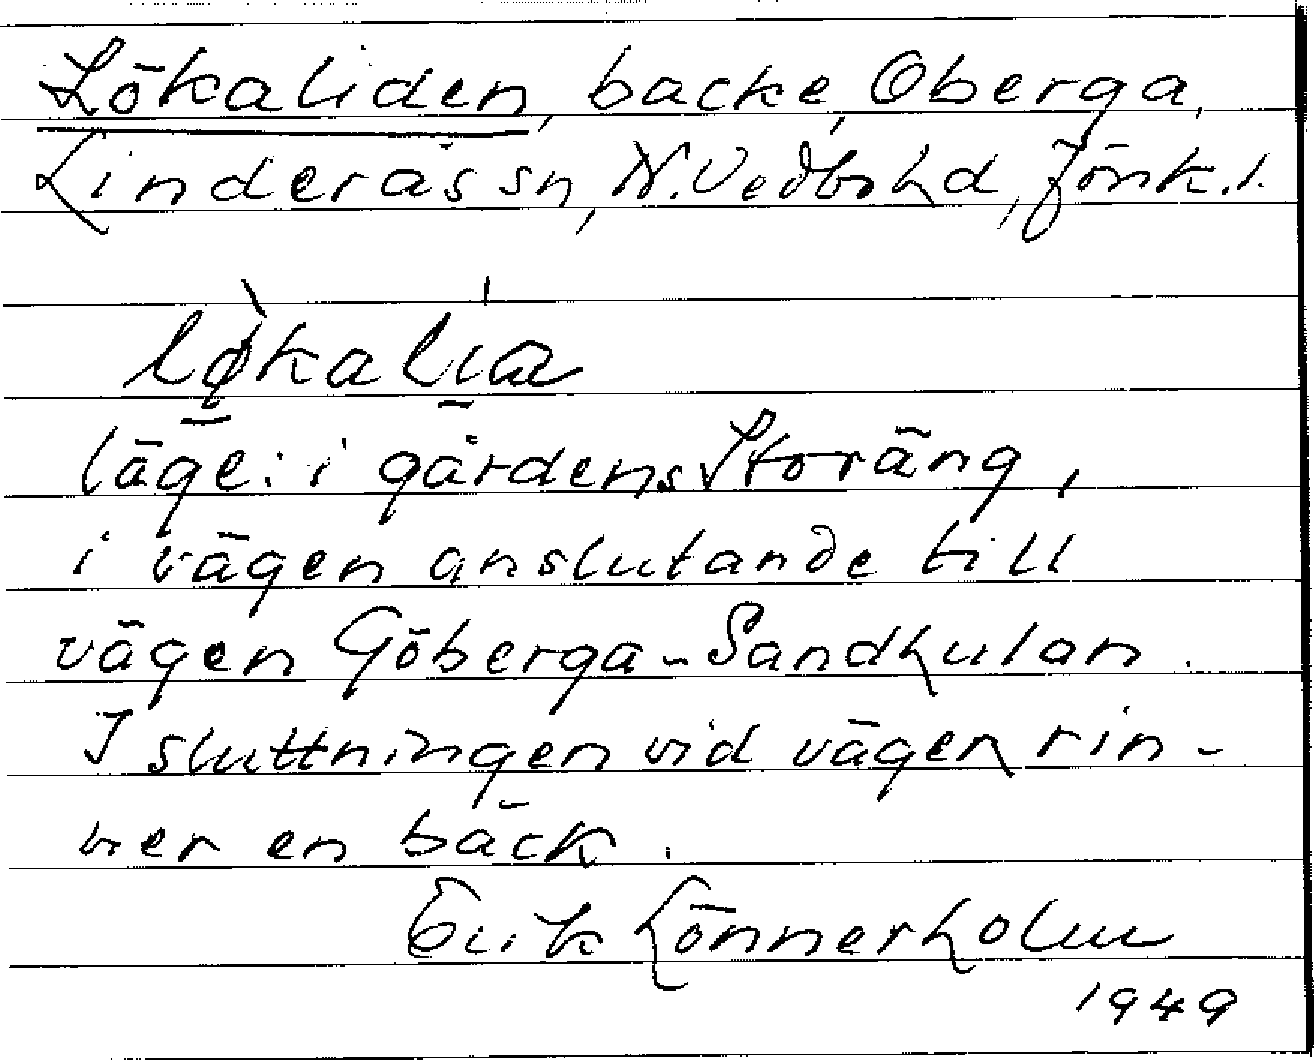 Lökaliden, backe, Oberga,
Linderås sn, N. Vedbo hd, Jönk. l.
lø̀kalı̍a
läge: i gårdens Storäng,
i vägen anslutande till
vägen Göberga - Sandkulan.
I sluttningen vid vägen rin-
ner en bäck.
Erik Lönnerholm
1949